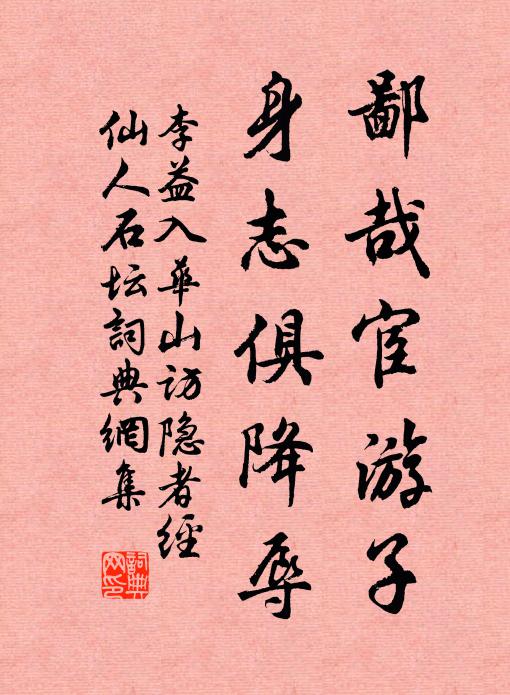 鄙哉宦游子
身志俱降辱
李益入華山访隐者經
仙人石坛詞典網集
詞典网印